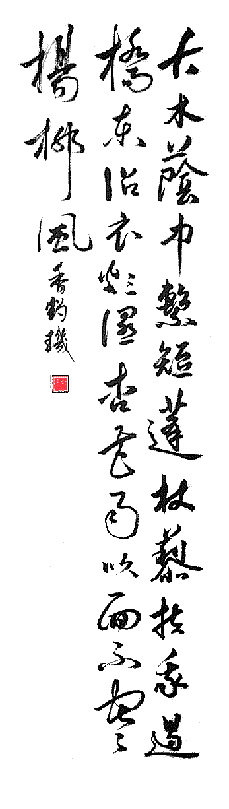 古木蔭中繫短蓬杖藜扶我過
橋東沾衣欲濕杏花雨吹面不寒
楊柳風